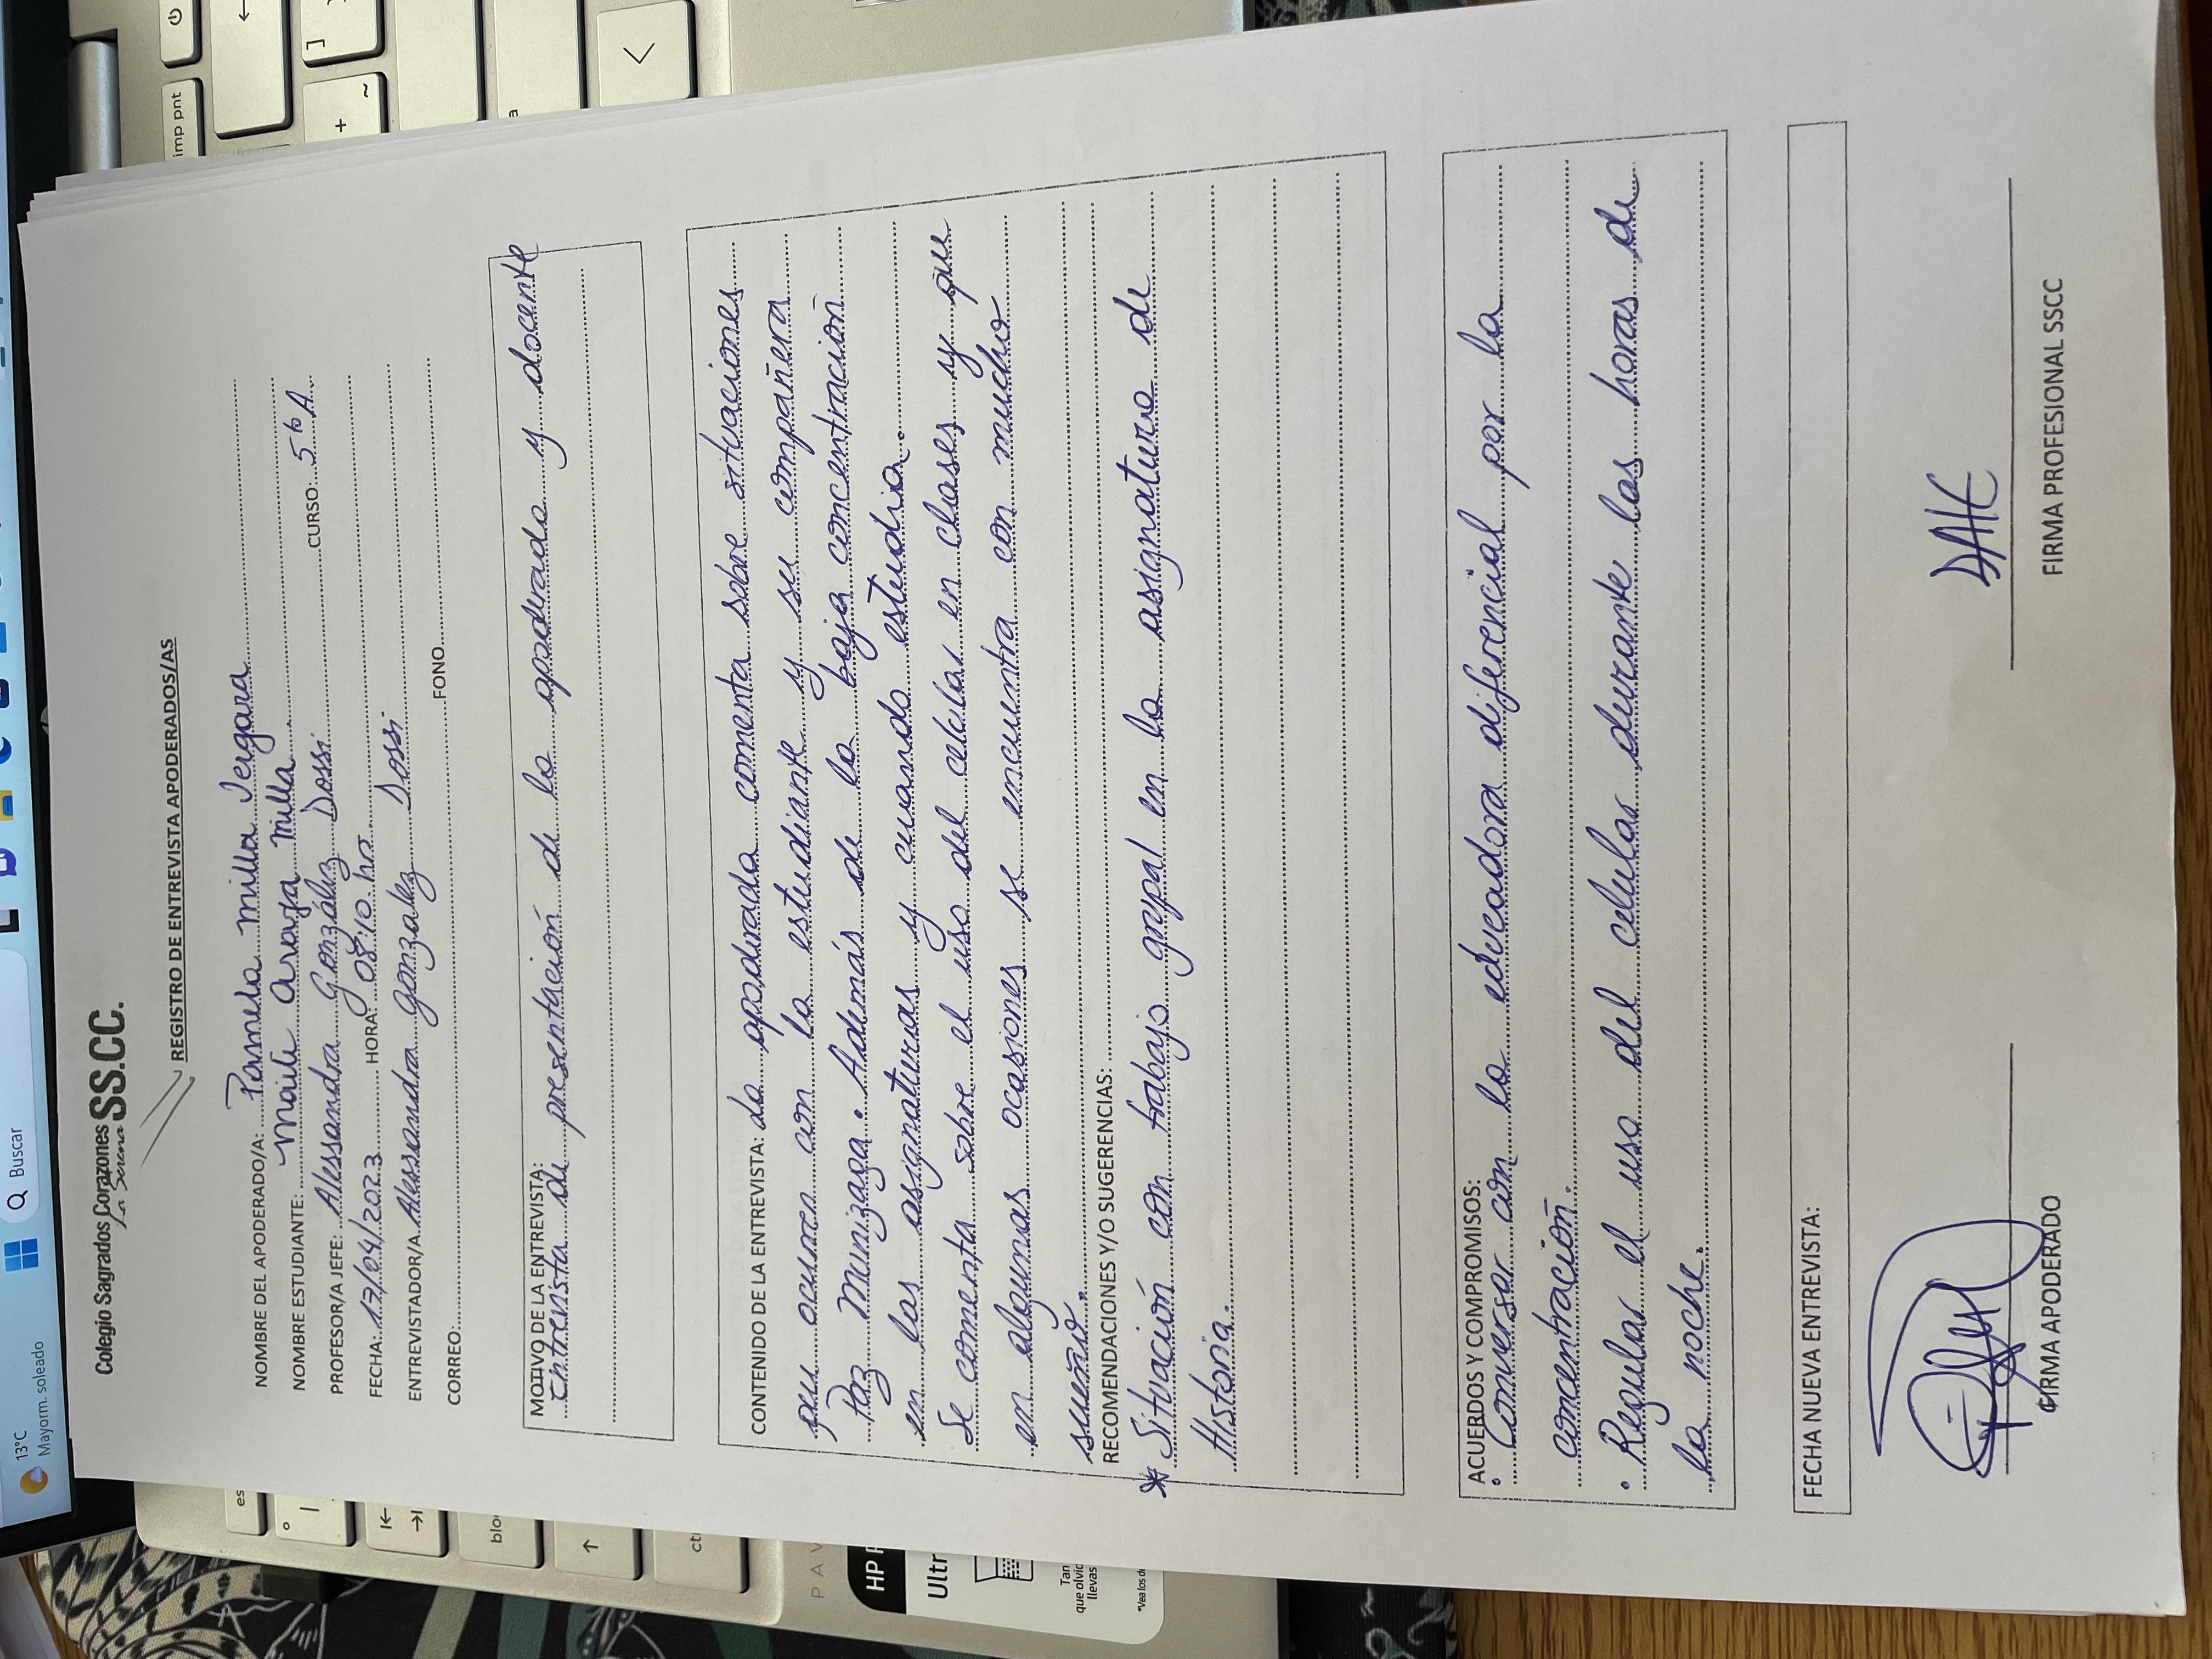 13°C
Mayorm. soleado
Buscar
Colegio Sagrados Corazones SS.CC.
La Serena
REGISTRO DE ENTREVISTA APODERADOS/AS
NOMBRE DEL APODERADO/A: Pamela Milla Vergara
NOMBRE ESTUDIANTE: Araya Milla.
PROFESOR/A JEFE: Alessandra González Dossi CURSO: 5ºb A
FECHA: 17/04/2023 HORA: 08:10 hrs
ENTREVISTADOR/A. Alessandra González Dossi
CORREO: FONO
MOTIVO DE LA ENTREVISTA:
Entrevista de presentación de la apoderada y docente
CONTENIDO DE LA ENTREVISTA: La apoderada comenta sobre situaciones
que ocurren con la estudiante y su compañera
Paz Munizaga. Además de la baja concentración
en las asignaturas y cuando estudia.
Se comenta sobre el uso del celular en clases y que
en algunas ocasiones se encuentra con mucho
sueño.
RECOMENDACIONES Y/O SUGERENCIAS:
* Situación con trabajo grupal en la asignatura de
Historia.
ACUERDOS Y COMPROMISOS:
• Conversar con la educadora diferencial por la
concentración.
• Regular el uso del celular durante las horas de
la noche.
FECHA NUEVA ENTREVISTA:
FIRMA APODERADO
FIRMA PROFESIONAL SSCC
imp pnt
HP
Ultr
Tan
que olvid
llevas
*Vea los de